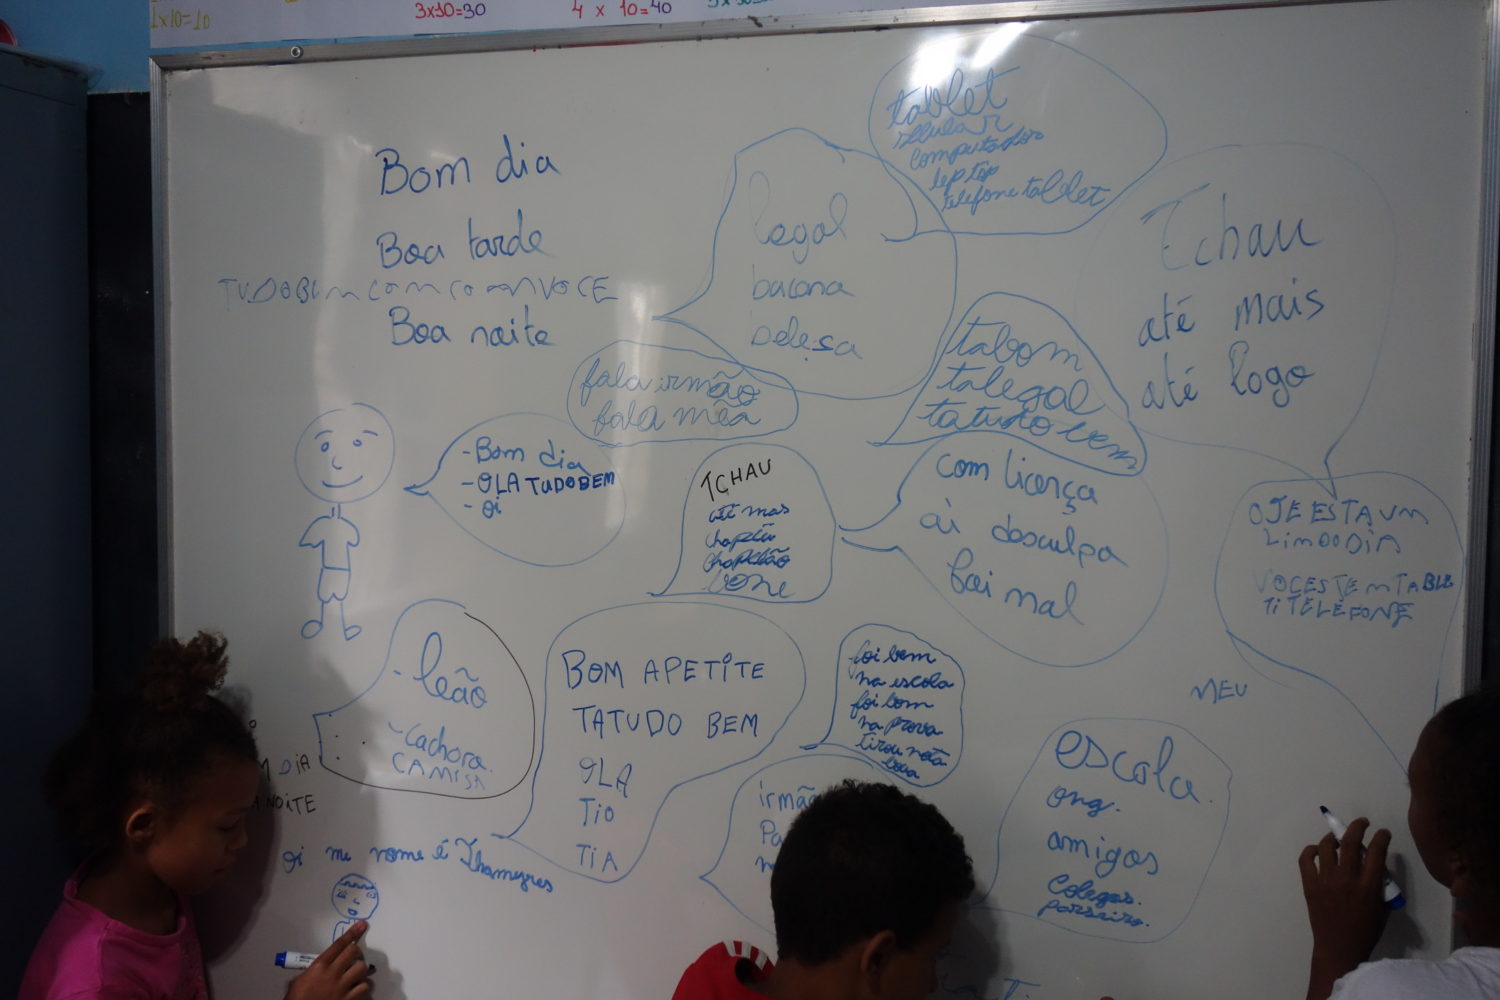 1x10=10
3x10=30
4 x 10=40
Bom dia
Boa tarde
TUDOBEM COM
VOCE
Boa noite
tablet
selular
computador
leptop
telefone tablet
legal
bacana
belesa
Tchau
até mais
até logo
fala irmão
fala
tabom
talegal
tatudo bem
- Bom dia
- OLA TUDOBEM
- oi
TCHAU
até mas
chapéu
chapelão
bone
com licença
ai desculpa
foi mal
OJE ESTA UM
LINDO DIA
VOCES TEM TABLE
TI TELEFONE
- leão
- cachora
CAMISA
BOM APETITE
TATUDO BEM
OLA
TIO
TIA
foi bem
na escola
foi bom
na prova
tirou nota
boa
MEU
escola.
ong.
amigos
Colegas.
parseiro.
irmão
Pa
DIA
NOITE
oi me nome é Thamyres